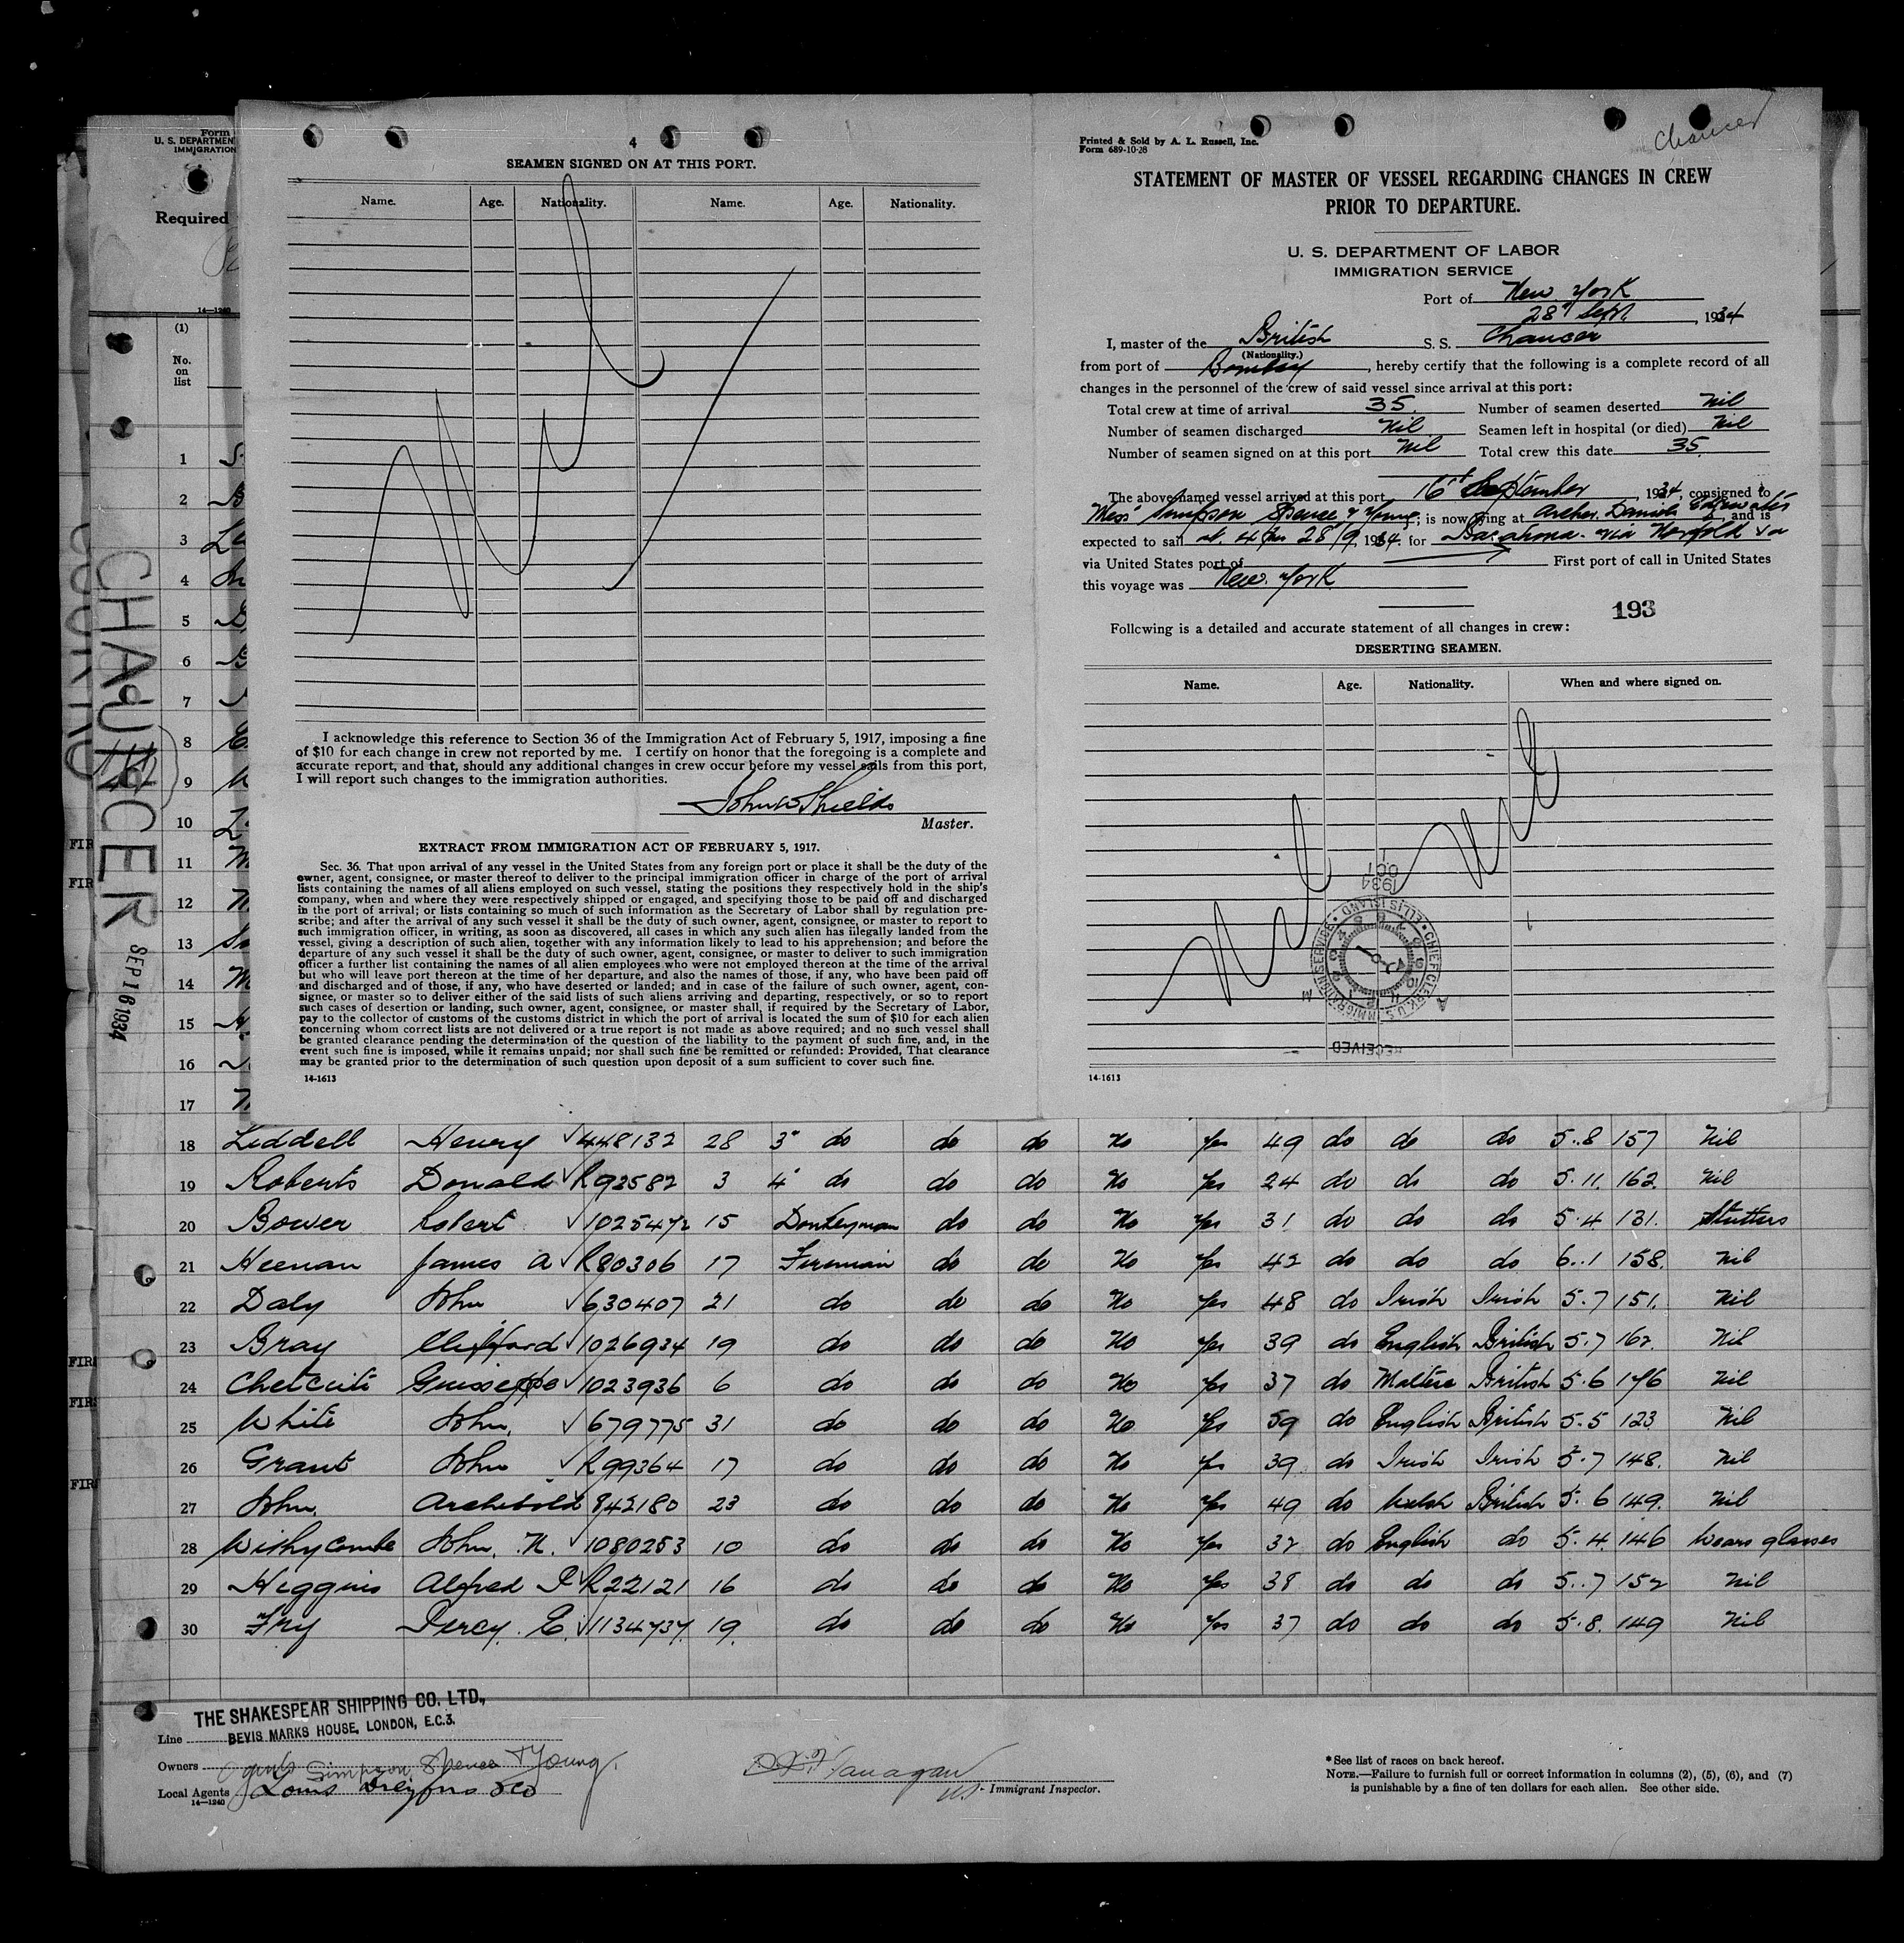 Form
U. S. DEPARTMEN
IMMIGRATION
Required
14—1240
(1)
No.
on
list
1
2
3
4
5
6
7
8
9
10
11
12
13
14
15
16
17
CHAUNCER
SEP 16 1934
FIR
FIR
FIR
FIR
FIR
4
SEAMEN SIGNED ON AT THIS PORT.
Name. Age. Nationality. Name. Age. Nationality.
Nil
I acknowledge this reference to Section 36 of the Immigration Act of February 5, 1917, imposing a fine
of $10 for each change in crew not reported by me. I certify on honor that the foregoing is a complete and
accurate report, and that, should any additional changes in crew occur before my vessel sails from this port,
I will report such changes to the immigration authorities.
John W Shields
Master.
EXTRACT FROM IMMIGRATION ACT OF FEBRUARY 5, 1917.
Sec. 36. That upon arrival of any vessel in the United States from any foreign port or place it shall be the duty of the
owner, agent, consignee, or master thereof to deliver to the principal immigration officer in charge of the port of arrival
lists containing the names of all aliens employed on such vessel, stating the positions they respectively hold in the ship's
company, when and where they were respectively shipped or engaged, and specifying those to be paid off and discharged
in the port of arrival; or lists containing so much of such information as the Secretary of Labor shall by regulation pre-
scribe; and after the arrival of any such vessel it shall be the duty of such owner, agent, consignee, or master to report to
such immigration officer, in writing, as soon as discovered, all cases in which any such alien has illegally landed from the
vessel, giving a description of such alien, together with any information likely to lead to his apprehension; and before the
departure of any such vessel it shall be the duty of such owner, agent, consignee, or master to deliver to such immigration
officer a further list containing the names of all alien employees who were not employed thereon at the time of the arrival
but who will leave port thereon at the time of her departure, and also the names of those, if any, who have been paid off
and discharged and of those, if any, who have deserted or landed; and in case of the failure of such owner, agent, con-
signee, or master so to deliver either of the said lists of such aliens arriving and departing, respectively, or so to report
such cases of desertion or landing, such owner, agent, consignee, or master shall, if required by the Secretary of Labor,
pay to the collector of customs of the customs district in which the port of arrival is located the sum of $10 for each alien
concerning whom correct lists are not delivered or a true report is not made as above required; and no such vessel shall
be granted clearance pending the determination of the question of the liability to the payment of such fine, and, in the
event such fine is imposed, while it remains unpaid; nor shall such fine be remitted or refunded: Provided, That clearance
may be granted prior to the determination of such question upon deposit of a sum sufficient to cover such fine.
14-1613
Printed & Sold by A. L. Russell, Inc.
Form 689-10-28
Chaucer
STATEMENT OF MASTER OF VESSEL REGARDING CHANGES IN CREW
PRIOR TO DEPARTURE.
U. S. DEPARTMENT OF LABOR
IMMIGRATION SERVICE
Port of New York
28th Sept. , 1934
I, master of the British S. S. Chaucer
(Nationality.)
from port of Bombay , hereby certify that the following is a complete record of all
changes in the personnel of the crew of said vessel since arrival at this port:
Total crew at time of arrival 35. Number of seamen deserted Nil
Number of seamen discharged Nil Seamen left in hospital (or died) Nil
Number of seamen signed on at this port Nil Total crew this date 35.
The above-named vessel arrived at this port 16th September , 1934, consigned to
Mess Simpson Spence & Young ; is now lying at Archer Daniels Edgewater , and is
expected to sail at 4 pm 28/9 1934. for Barahona. via Norfolk Va
via United States port of First port of call in United States
this voyage was New. York
193
Following is a detailed and accurate statement of all changes in crew:
DESERTING SEAMEN.
Name. Age. Nationality. When and where signed on.
Nil Nil
1934 OCT 1
CHIEF CLERK, U.S. IMMIGRATION SERVICE • ELLIS ISLAND •
A M
RECEIVED
14-1613
18 Liddell Henry √448132 28 3" do do do No Yes 49 do do do 5.8 157 Nil
19 Roberts Donald √R92582 3 4" do do do No Yes 24 do do do 5.11. 162. Nil
20 Bower Robert √1025472 15 Donkeyman do do No Yes 31 do do do 5.4 131. Stutters
21 Heenan James A √R80306 17 Fireman do do No Yes 42 do do do 6.1 158. Nil
22 Daly John √630407 21 do do do No Yes 48 do Irish Irish 5.7 151. Nil
23 Bray Clifford √1026934 19 do do do No Yes 39 do English British 5.7 162. Nil
24 Chetcuti Guiseppe √1023936 6 do do do No Yes 37 do Maltese British 5.6 176 Nil
25 White John. √679775 31 do do do No Yes 59 do English British 5.5 123 Nil
26 Grant John √R99364 17 do do do No Yes 39. do Irish Irish 5.7 148. Nil
27 John. Archibold 842180 23 do do do No Yes 49 do Welsh British 5.6 149. Nil
28 Withycombe John. N. √1080253 10 do do do No Yes 32 do English do 5.4. 146 Wears glasses
29 Higgins Alfred P √R22121 16 do do do No Yes 38 do do do 5.7 152 Nil
30 Fry Percy. E. √1134737. 19. do do do No Yes 37 do do do 5.8. 149 Nil
THE SHAKESPEAR SHIPPING CO. LTD.,
Line BEVIS MARKS HOUSE, LONDON, E.C.3.
Owners Agents Simpson, Spence & Young.
Local Agents Louis Dreyfus & Co
14—1240
Flanagan
US - Immigrant Inspector.
* See list of races on back hereof.
NOTE.—Failure to furnish full or correct information in columns (2), (5), (6), and (7)
is punishable by a fine of ten dollars for each alien. See other side.